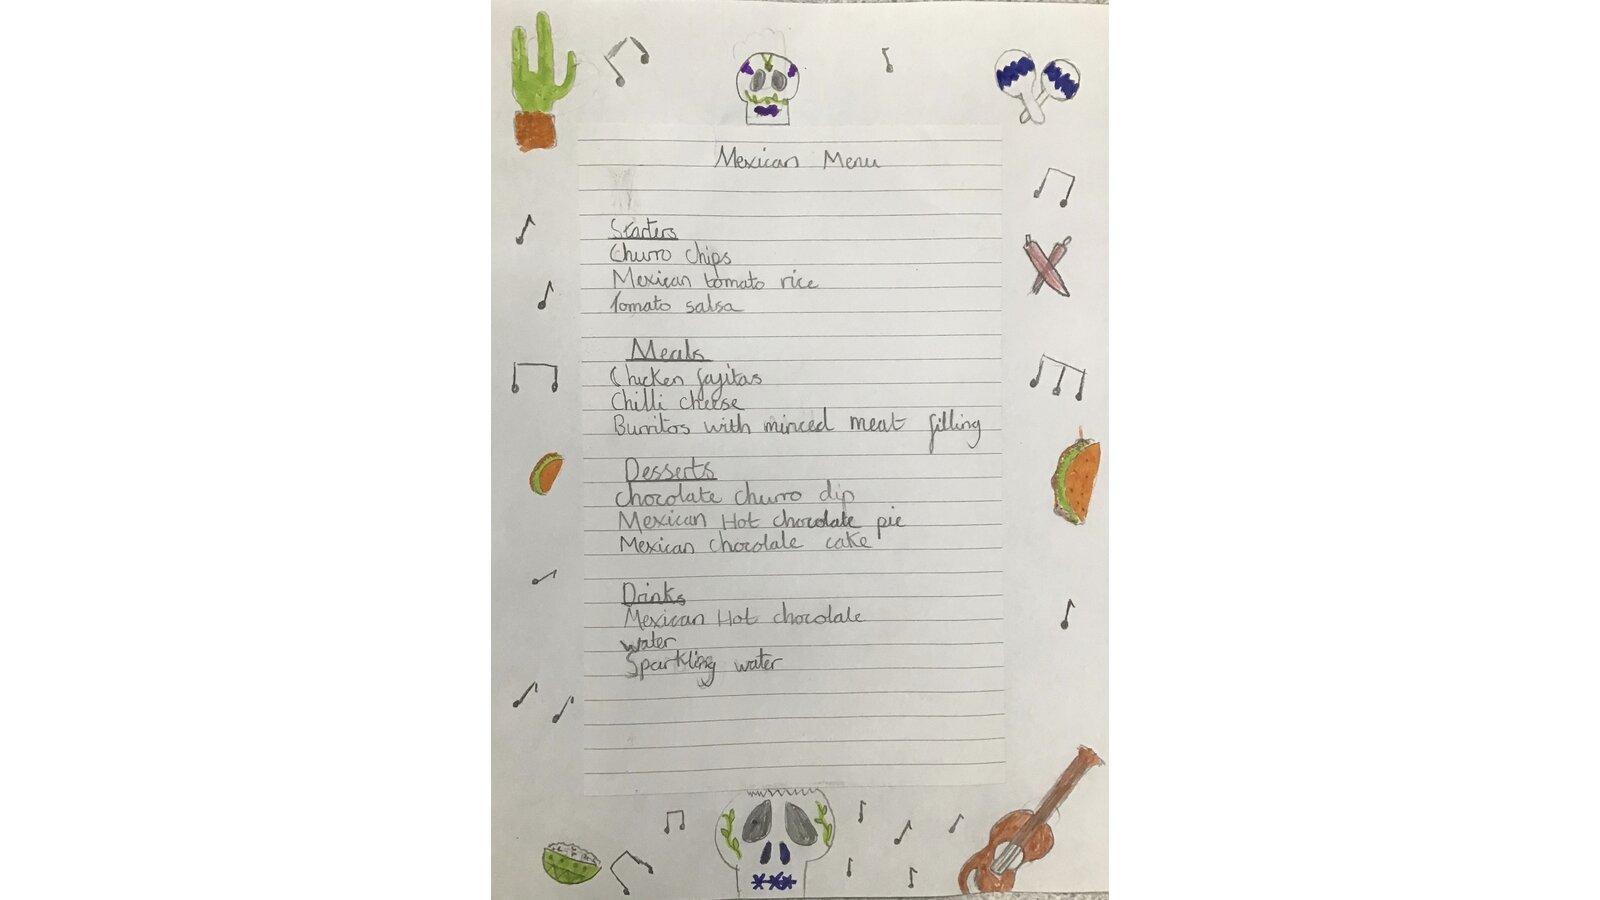 Mexican Menu
Starters
Churro chips
Mexican tomato rice
Tomato salsa
Meals
Chicken fajitas
Chilli cheese
Burritos with minced meat filling
Desserts
chocolate churro dip
Mexican Hot chocolate pie
Mexican chocolate cake
Drinks
Mexican Hot chocolate
water
Sparkling water